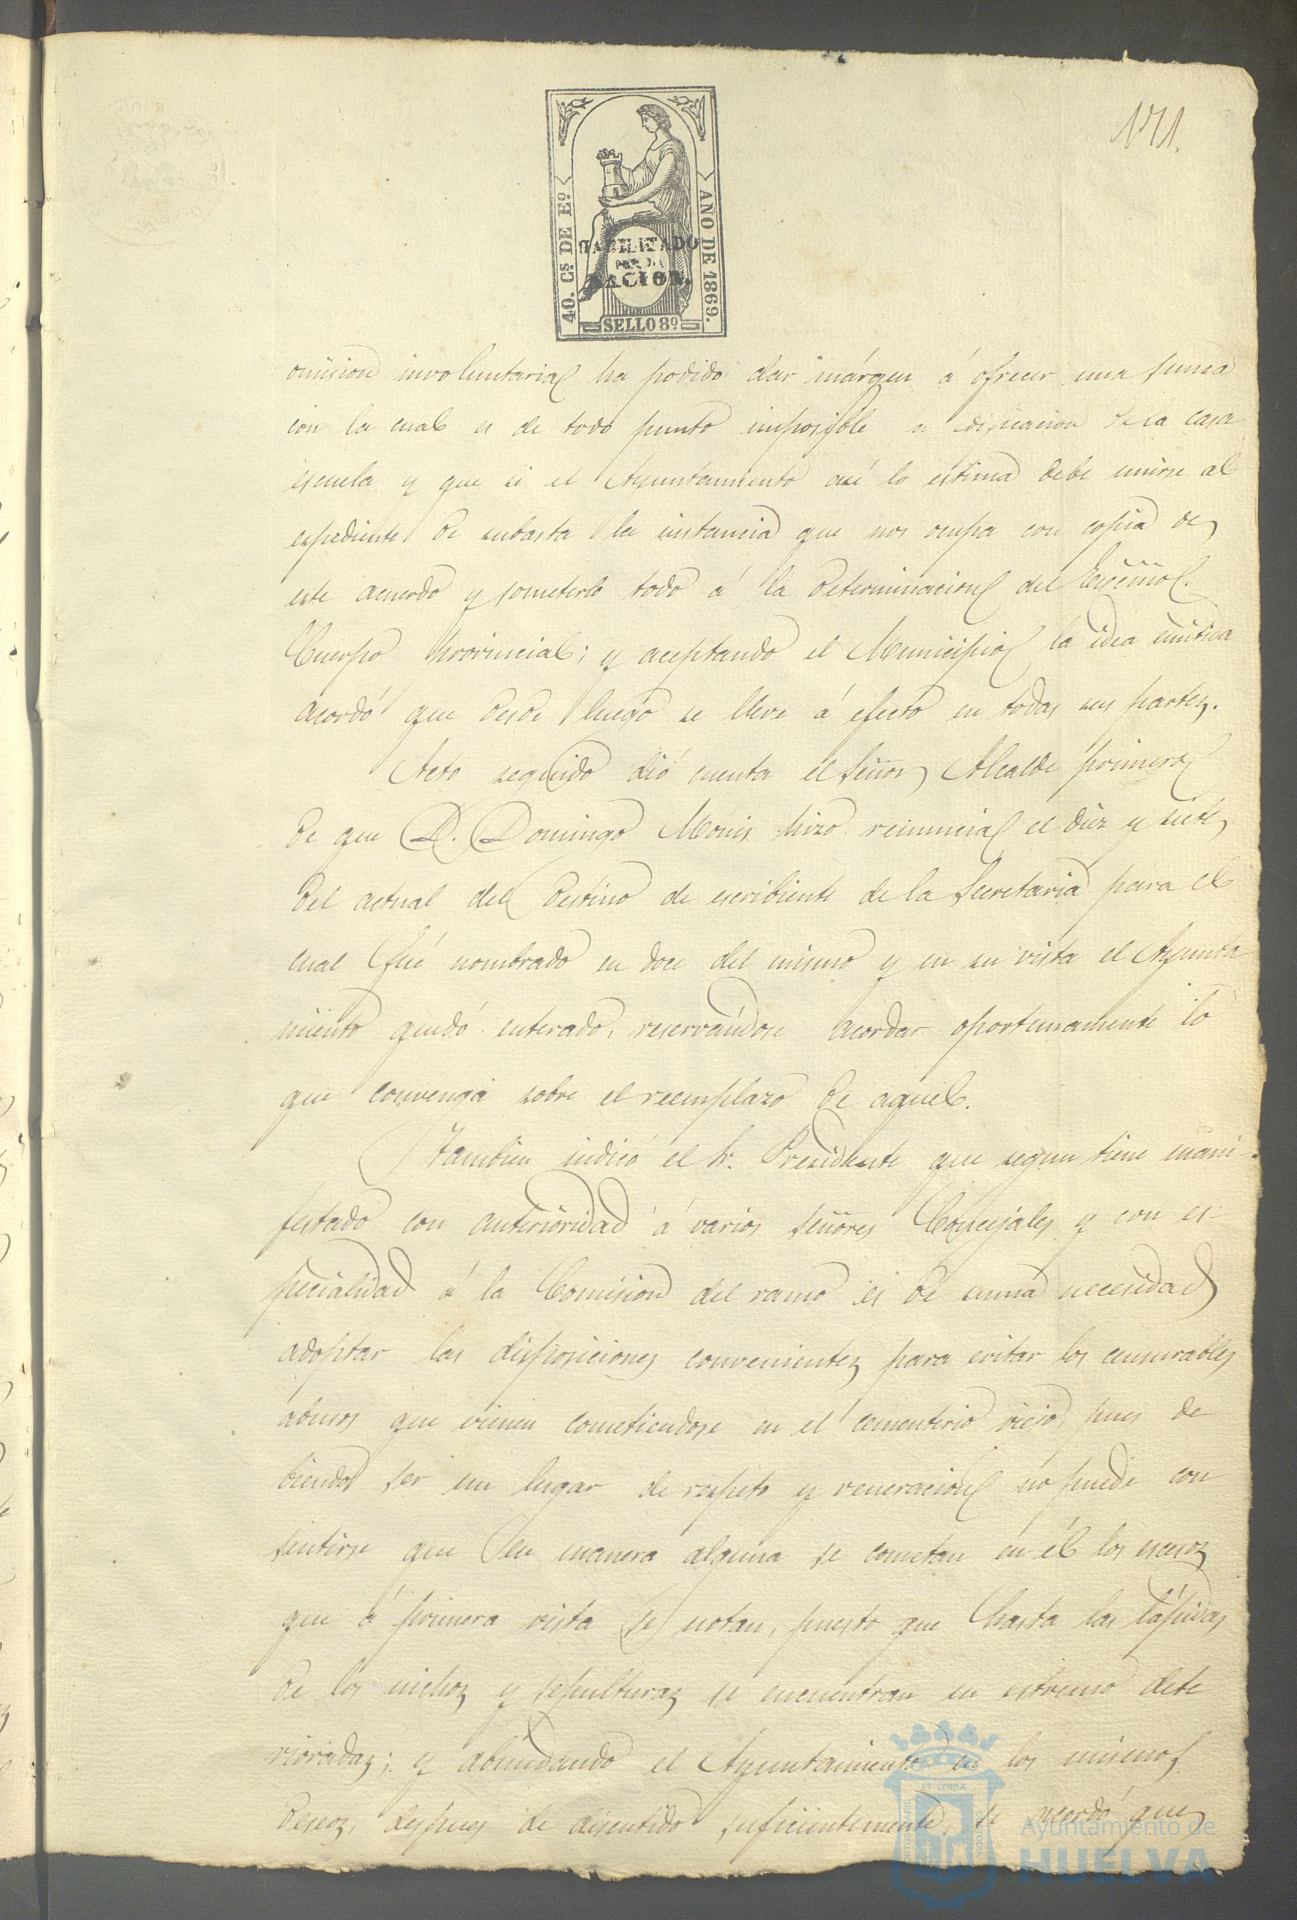 171.
40. Cs. DE Eo.
AÑO DE 1869.
HABILITADO
POR LA
NACION.
SELLO 8º
omision involuntaria ha podido dar márgen á ofrecer una suma
con la cual es de todo punto imposible la edificacion de la casa
escuela y que si el Ayuntamiento asi lo estima debe unirse al
espediente de subasta la instancia que nos ocupa con copia de
este acuerdo y someterlo todo á la determinacion del Escmo.
Cuerpo provincial; y aceptando el Municipio la idea emitida
acordó que desde luego se lleve á efecto en todas sus partes.
Acto seguido dió cuenta el Señor Alcalde primero
de que D. Domingo Monis hizo renuncia el diez y siete
del actual del destino de escribiente de la Secretaria para el
cual fué nombrado en doce del mismo y en su vista el Ayunta
miento quedó enterado, reservándose acordar oportunamente lo
que convenga sobre el reemplazo de aquel.
Tambien indicó el Sr. Presidente que segun tiene mani-
festado con anterioridad á varios Señores Concejales y con es-
pecialidad á la Comision del ramo es de suma necesidad
adoptar las disposiciones convenientes para evitar los censurables
abusos que vienen cometiendose en el cementerio viejo, pues de
biendo ser un lugar de respeto y veneracion no puede con
sentirse que en manera alguna se cometan en él los escesos
que á primera vista se notan, puesto que hasta las lápidas
de los nichos y sepulturas se encuentran en estremo dete
rioradas; y abundando el Ayuntamiento en los mismos
deseos, despues de discutido suficientemente, se acordó que
Ayuntamiento de
HUELVA